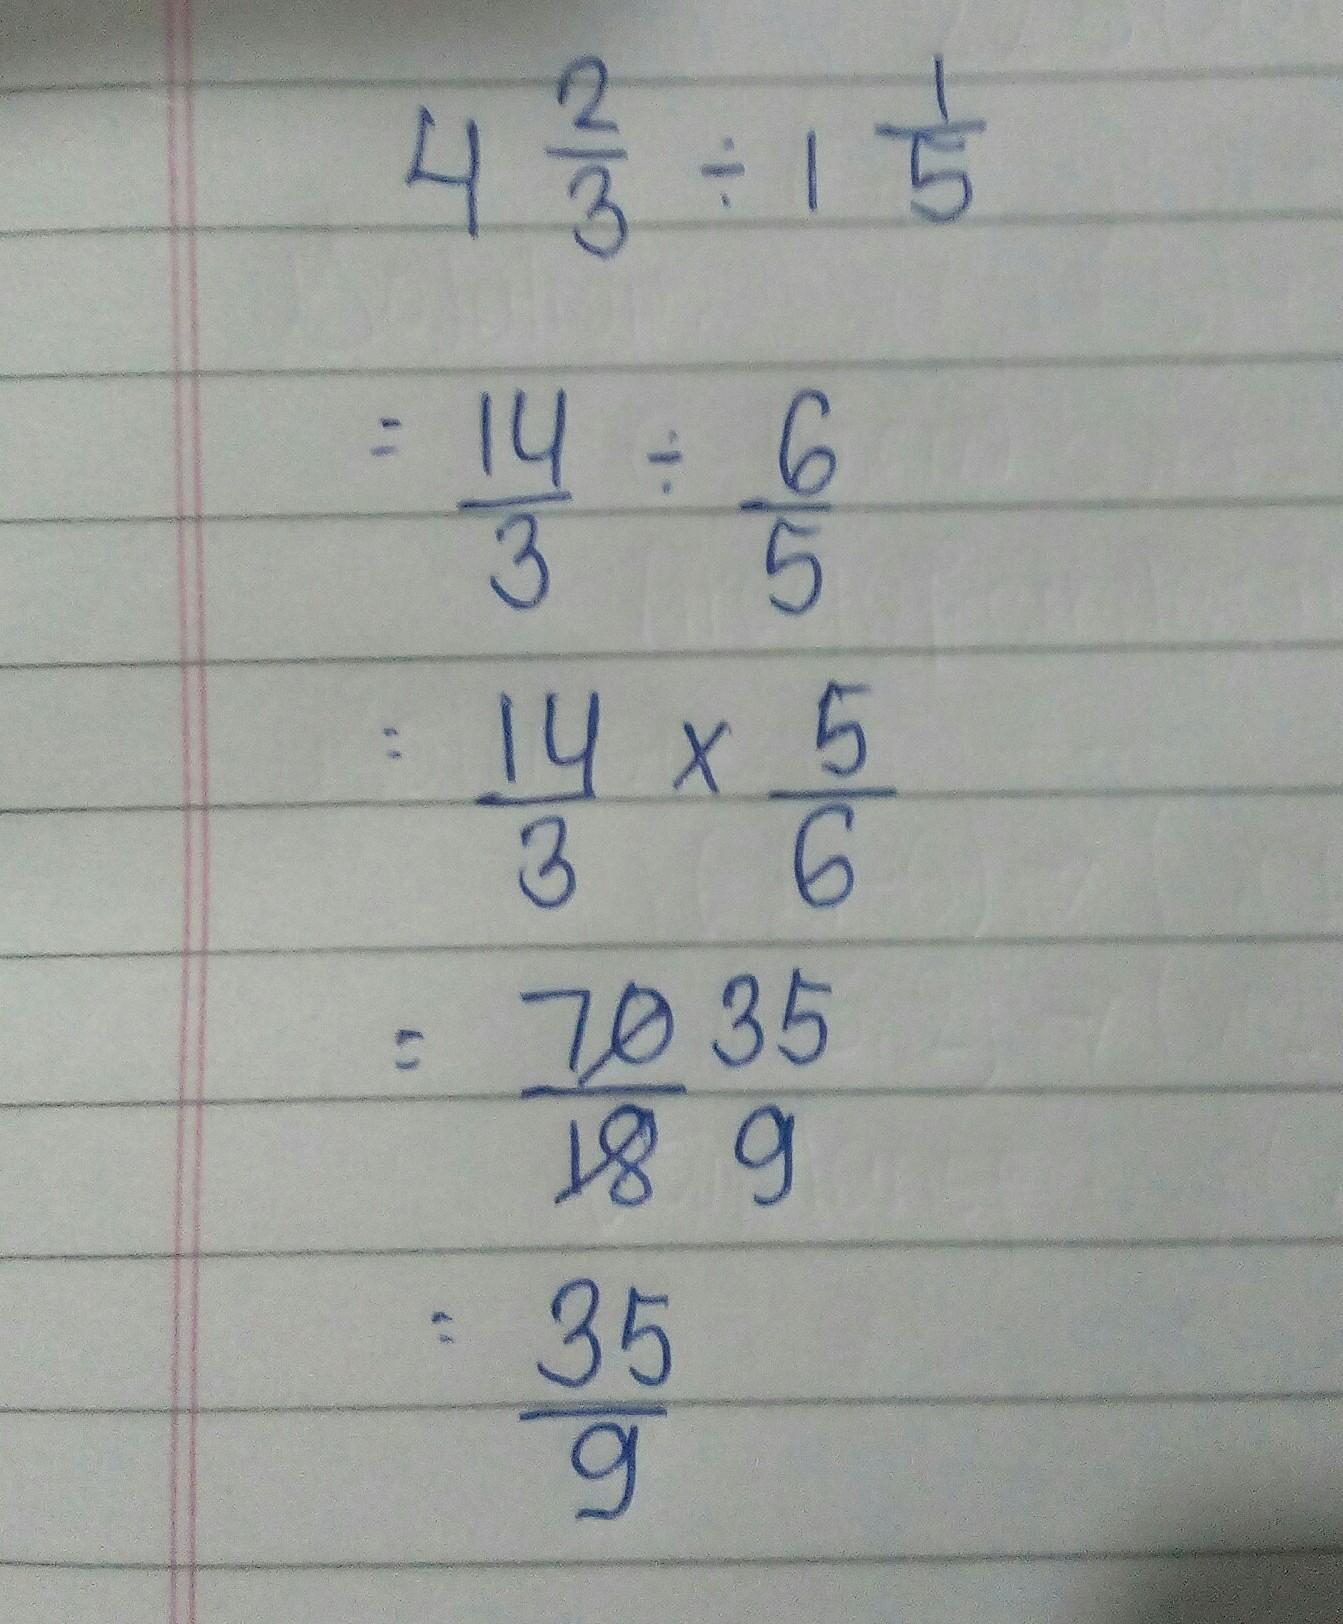 4 2/3 ÷ 1 1/5
= 14/3 ÷ 6/5
= 14/3 × 5/6
= 70/18 35/9
= 35/9